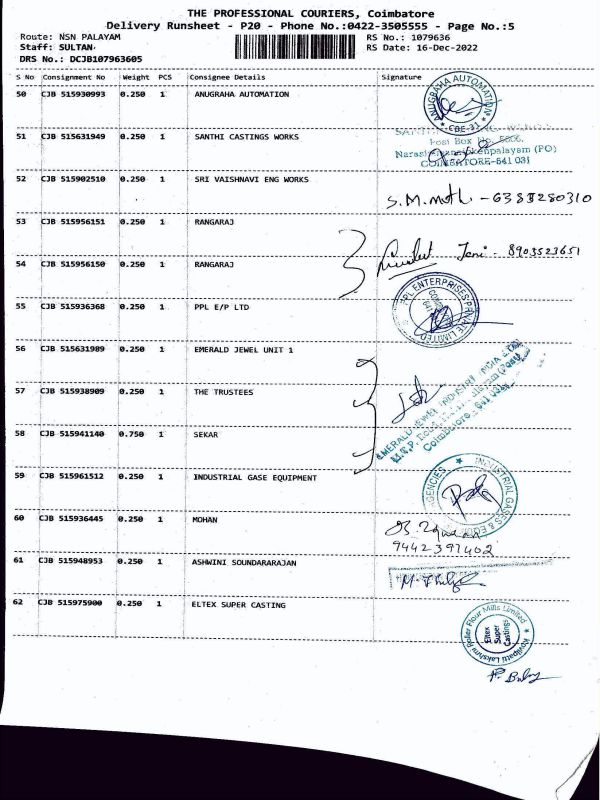 THE PROFESSIONAL COURIERS, Coimbatore
Delivery Runsheet - P20 - Phone No.:0422-3505555 - Page No.:5
Route: NSN PALAYAM RS No.: 1079636
Staff: SULTAN RS Date: 16-Dec-2022
DRS No.: DCJB107963605
S No Consignment No Weight PCS Consignee Details Signature
50 CJB 515930993 0.250 1 ANUGRAHA AUTOMATION
ANUGRAHA AUTOMATION
CBE-31
51 CJB 515631949 0.250 1 SANTHI CASTINGS WORKS
Post Box No. 5606,
COIMBATORE-641 031
52 CJB 515902510 0.250 1 SRI VAISHNAVI ENG WORKS
S.M. - 6383280310
53 CJB 515956151 0.250 1 RANGARAJ
8903523651
54 CJB 515956150 0.250 1 RANGARAJ
55 CJB 515936368 0.250 1 PPL E/P LTD
PPL ENTERPRISES PRIVATE LIMITED
56 CJB 515631989 0.250 1 EMERALD JEWEL UNIT 1
57 CJB 515938909 0.250 1 THE TRUSTEES
EMERALD JEWEL INDUSTRY INDIA
Coimbatore
58 CJB 515941140 0.750 1 SEKAR
59 CJB 515961512 0.250 1 INDUSTRIAL GASE EQUIPMENT
INDUSTRIAL GASES & AGENCIES
60 CJB 515936445 0.250 1 MOHAN
9442397402
61 CJB 515948953 0.250 1 ASHWINI SOUNDARARAJAN
62 CJB 515975900 0.250 1 ELTEX SUPER CASTING
Kovilpatti Lakshmi Roller Flour Mills Limited
Eltex
Super
Castings